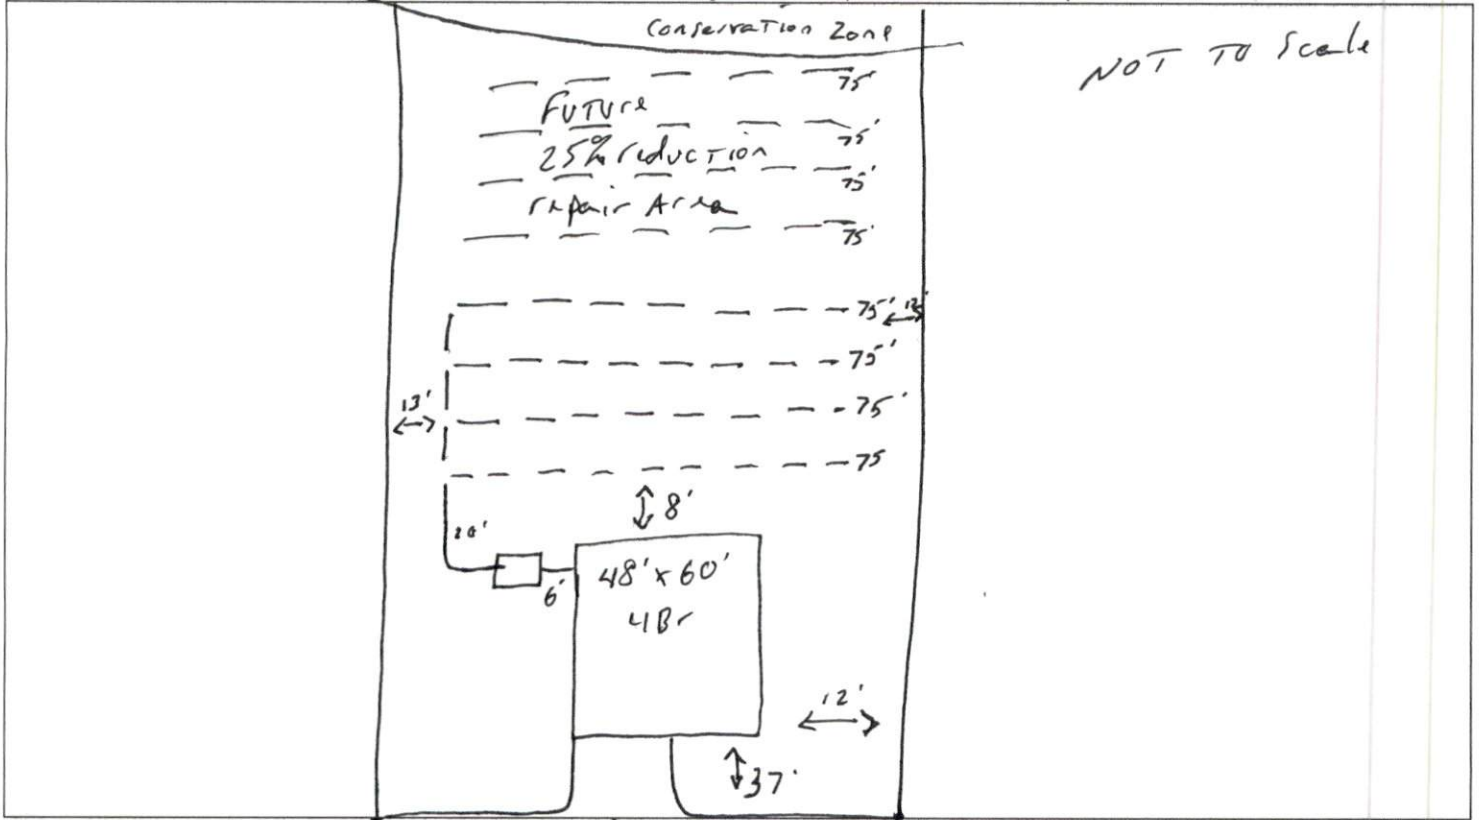 Conservation Zone
NOT TO Scale
75'
Future
75'
25% reduction
75'
repair Area
75'
75'
75'
13'
75'
75
8'
48' x 60'
6'
4Br
12'
37'